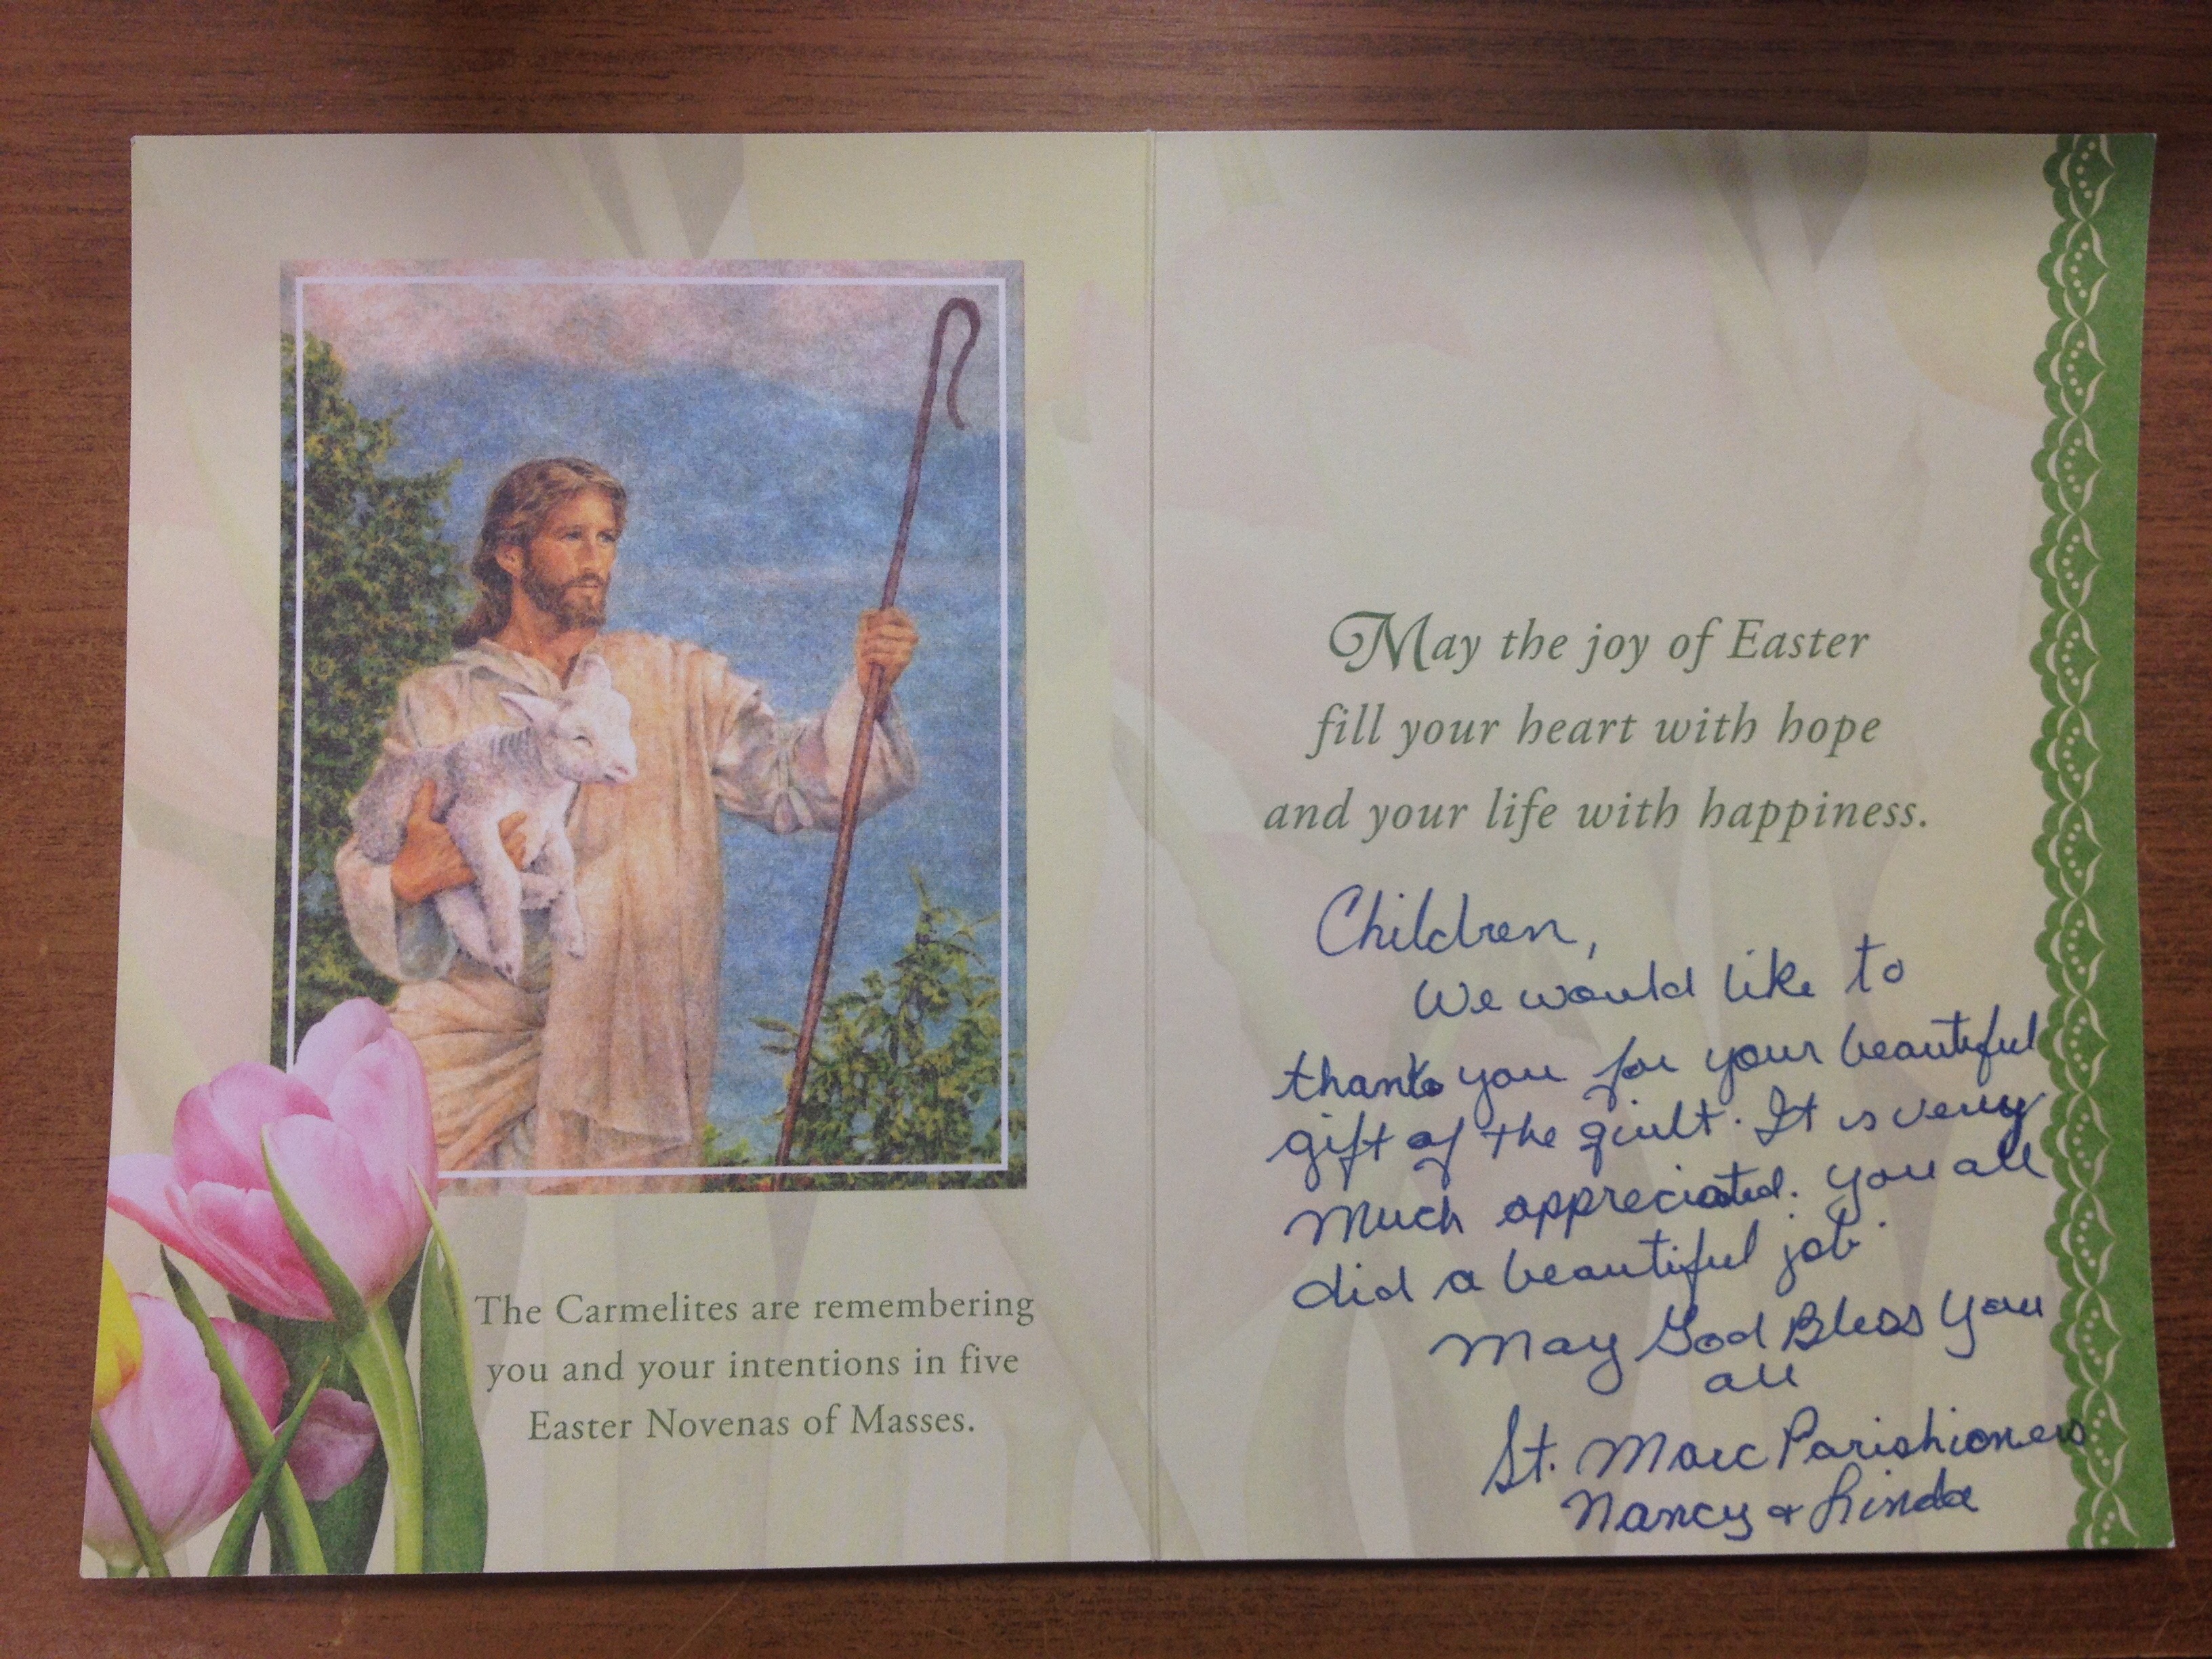 The Carmelites are remembering
you and your intentions in five
Easter Novenas of Masses.
May the joy of Easter
fill your heart with hope
and your life with happiness.
Children,
We would like to
thank you for your beautiful
gift of the quilt. It is very
much appreciated. You all
did a beautiful job.
May God Bless You
all
St. Marc Parishioners
Nancy & Linda